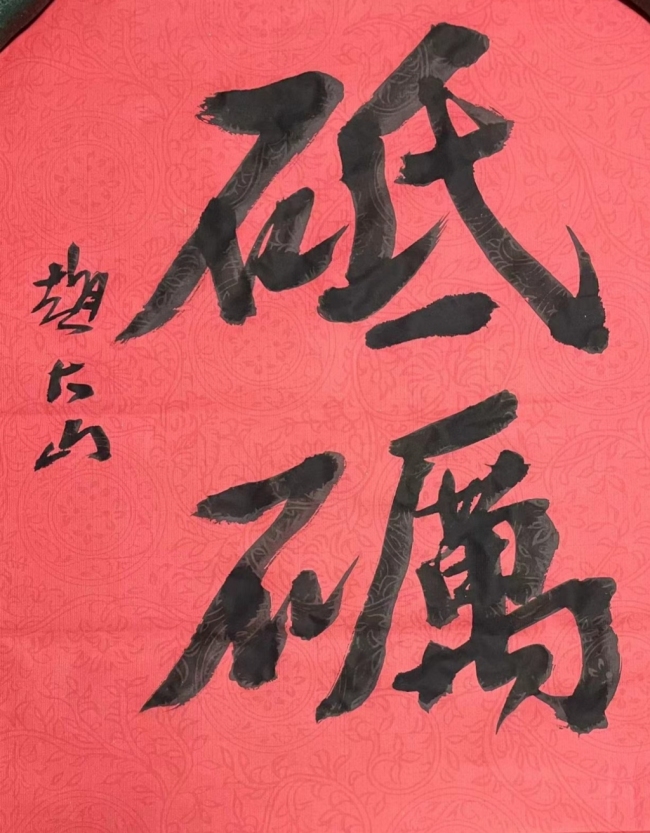 砥礪
趙大山